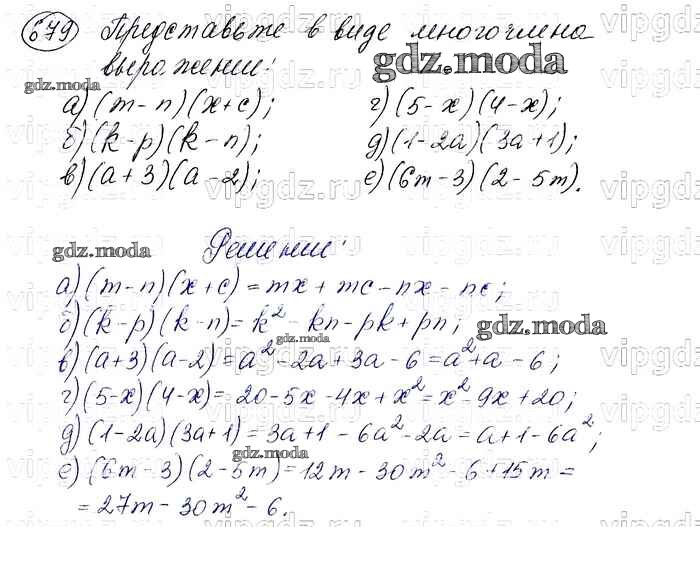 679 Представьте в виде многочлена
выражение:
gdz.moda
gdz.moda
а) (m-n)(x+c); г) (5-x)(4-x);
б) (k-p)(k-n); д) (1-2a)(3a+1);
в) (a+3)(a-2); е) (6m-3)(2-5m).
vipgdz.ru
Решение:
gdz.moda
а) (m-n)(x+c) = mx + mc - nx - nc;
б) (k-p)(k-n) = k² - kn - pk + pn;
gdz.moda
gdz.moda
в) (a+3)(a-2) = a² - 2a + 3a - 6 = a² + a - 6;
г) (5-x)(4-x) = 20 - 5x - 4x + x² = x² - 9x + 20;
д) (1-2a)(3a+1) = 3a + 1 - 6a² - 2a = a + 1 - 6a²;
е) (6m-3)(2-5m) = 12m - 30m² - 6 + 15m =
= 27m - 30m² - 6.